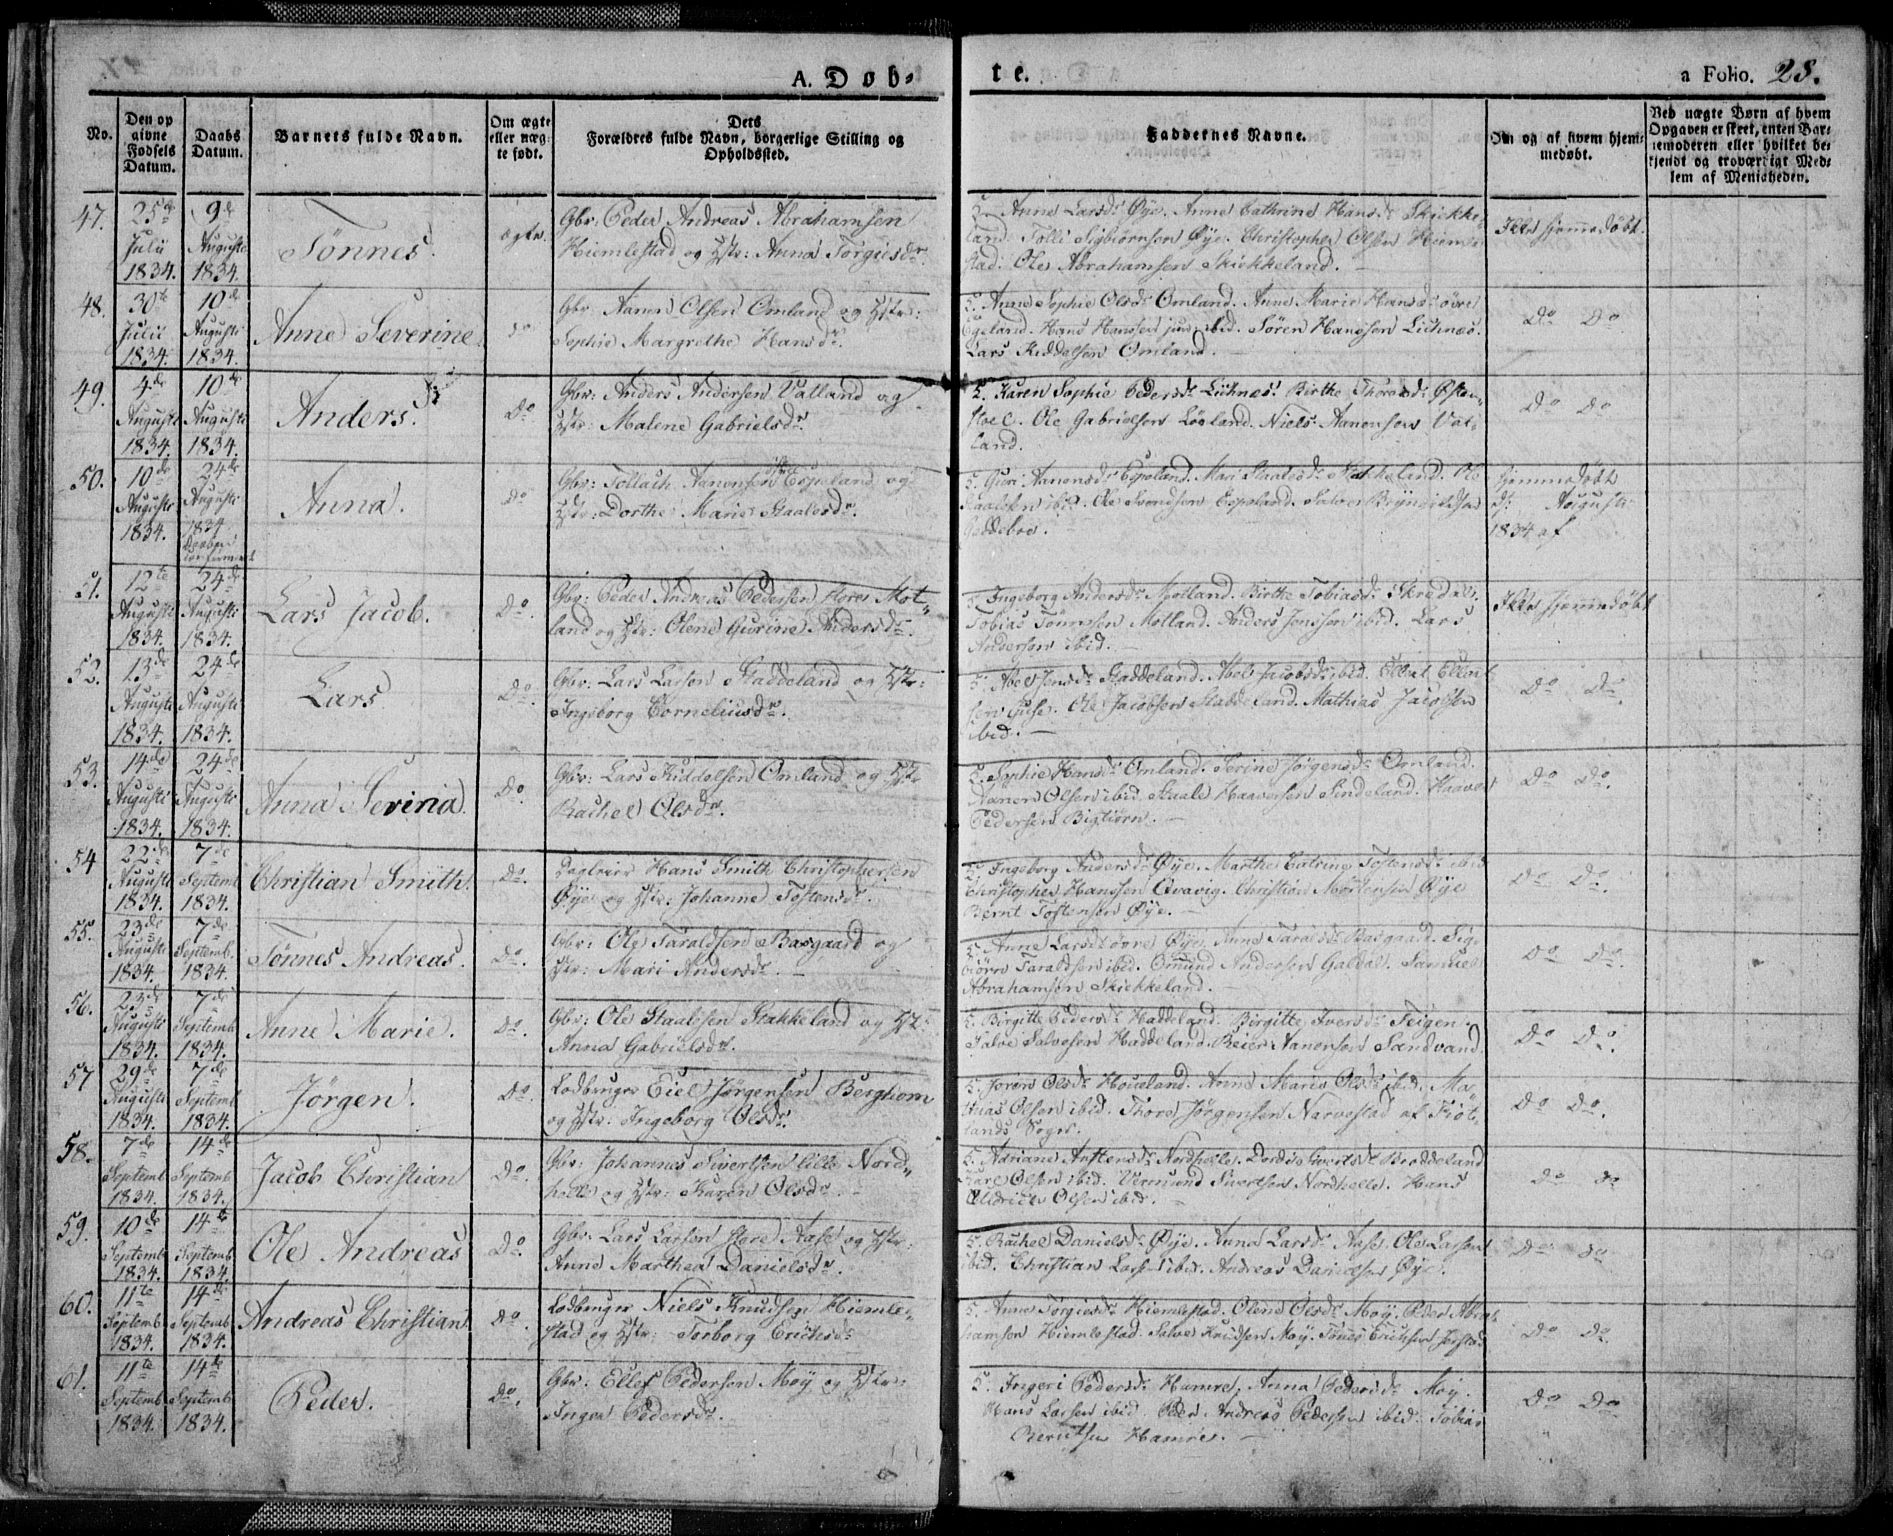 A. Døb-
te.
a Folio. 28.
No.
Den op
givne
Fødsels
Datum.
Daabs
Datum.
Barnets fulde Navn.
Om ægte
eller uæg-
te født.
Dets
Forældres fulde Navn, borgerlige Stilling og
Opholdssted.
Faddernes Navne.
Om og af hvem hjem-
medøbt.
Ved uægte Børn af hvem
Opgaven er skeet, enten Bar-
nemoderen eller hvilket be-
kjendt og troværdigt Med-
lem af Menigheden.
47.
25de
Julii
1834.
9de
Augusti
1834.
Tönnes.
ægte.
Gbr: Peder Andreas Abrahamsen
Hiemlestad og Hstr: Anna Torgiesdr.
5. Anne Larsdr Øye. Anne Cathrine Hansdr Skiekke-
land. Tolli Sigbiörnsen Øye. Christopher Olsen Hiemle-
stad. Ole Abrahamsen Skiekkeland.
Ikke hjemmedøbt.
48.
30te
Julii
1834.
10de
Augusti
1834.
Anne Severine.
do
Gbr: Aanen Olsen Omland og Hstr:
Sophie Margrethe Hansdr.
5. Anne Sophie Olsdr Omland. Anne Marie Hansdr øvre
Egeland. Hans Hanssen jun. ibid. Sören Hanssen Liehnes.
Lars Kiddelsen Omland.
Do Do
49.
4de
Augusti
1834.
10de
Augusti
1834.
Anders.
Do
Gbr: Anders Andersen Vatland og
Hstr: Malene Gabrielsdr.
5. Karen Sophie Pedersdr Liehnes. Birthe Thoresdr Østen-
stoel. Ole Gabrielsen Lögland. Niels Aanensen Vat-
land.
Do Do
50.
10de
Augusti
1834.
24de
Augusti
1834
Anna.
Do
Gbr: Tollach Aanensen Espeland og
Hstr: Dorthe Marie Staalesdr.
5. Guri Aanensdr Espeland. Mari Staalesdr Stakkeland. Ole
Staalesen ibid. Ole Svendsen Espeland. Salve Bryngildsen
Geddeboe.
Hjemmedøbt
d: Augusti
1834 af
51.
12te
Augusti
1834.
24de
Augusti
1834.
Lars Jacob.
Do.
Gbr: Peder Andreas Pedersen store Mot-
land og Hstr: Olene Gurine Andersdr.
5. Ingeborg Andersdr Motland. Birthe Tobiasdr Skredal.
Tobias Tönnesen Motland. Anders Jonssen ibid. Lars
Andersen ibid.
Ikke hjemmedøbt
52.
13de
Augusti
1834.
24de
Augusti
1834.
Lars
Do.
Gbr: Lars Larsen Staddeland og Hstr:
Ingeborg Corneliusdr.
5. Abel Jensdr Staddeland. Abel Jacobsdr ibid. Ellert Ellert-
sen Guse. Ole Jacobsen Staddeland. Mathias Jacobsen
ibid.
Do Do.
53.
14de
Augusti
1834.
24de
Augusti
1834.
Anna Sevina.
Do.
Gbr: Lars Kiddelsen Omland og Hstr
Rachel Olsdr.
5. Sophie Hansdr Omland. Serine Jörgensdr Omland.
Aanen Olsen ibid. Staale Haaversen Sindeland. Haaver
Pedersen Bigtiörn.
Do Do.
54
22de
Augusti
1834.
7de
Septemb
1834.
Christian Smith.
Do.
Dagleier Hans Smith Christophersen
Øye og Hstr: Johanne Tostensdr.
5. Ingeborg Andersdr Øye. Marthe Catrine Tostensdr ibid
Christopher Hanssen Qvavig. Christian Mortensen Øye
Bernt Tostensen Øye.
Do Do.
55.
23de
Augusti
1834.
7de
Septemb.
1834.
Tönnes Andreas.
Do.
Gbr: Ole Taraldsen Basgaard og
Hstr: Mari Andersdr.
5. Anne Larsdr øvre Øye. Anne Taraldsdr Basgaard. Sig-
biörn Taraldsen ibid. Omund Andersen Galdal. Samuel
Abrahamsen Skiekkeland.
Do Do.
56.
23de
Augusti
1834.
7de
Septemb
1834.
Anne Marie.
Do.
Gbr: Ole Staalesen Stakkeland og Hstr
Anna Gabrielsdr.
5. Birgitte Pedersdr Haddeland. Birgitte Iversdr Feigen.
Salve Salvesen Haddeland. Reier Aanensen Sandvand.
Do Do.
57
29de
Augusti
1834.
7de
Septemb
1834.
Jörgen.
Do.
Lodbruger Eiel Jörgensen Berghom
og Hstr: Ingeborg Olsdr.
5. Joren Olsdr Houeland. Anne Marie Olsdr ibid. Ma-
thias Olsen ibid. Thore Jörgensen Narvestad af Fiot-
lands Sogn.
Do Do.
58.
7de
Septemb
1834.
14de
Septemb
1834.
Jacob Christian
Do.
Gbr: Johannes Sivertsen lille Nord-
helle og Hstr: Karen Olsdr.
5. Adriane Austensdr Nordhelle. Dordis Sivertsdr Broddeland
Kare Olsen ibid. Vermund Sivertsen Nordhelle. Hans
Uldrich Olsen ibid.
Do do
59.
10de
Septemb
1834.
14de
Septemb
1834.
Ole Andreas
Do.
Gbr: Lars Larsen store Aase og Hstr:
Anne Marthea Danielsdr.
5. Rachel Danielsdr Øye. Anna Larsdr Aase. Ole Larsen
ibid. Christian Larsen ibid. Andreas Danielsen Øye.
Do do
60.
11te
Septemb
1834.
14de
Septemb
1834.
Andreas Christian
Do.
Lodbruger Niels Knudsen Hiemle-
stad og Hstr: Torborg Erichsdr
5. Anne Torgiesdr Hiemlestad. Olene Olsdr Moy. Peder Abra-
hamsen Hiemlestad. Salve Knudsen Moy. Tönnes Erichsen Jerstad
Do Do
61.
11te
Septemb
1834.
14de
Septemb
1834.
Peder.
Do.
Gbr: Ellef Pedersen Moy og Hstr:
Inger Pedersdr.
5. Ingeri Pedersdr Hamre. Anna Pedersdr Moy.
Hans Larsen ibid Peder Andreas Pedersen ibid. Tobias
Berntsen Hamre.
Do Do